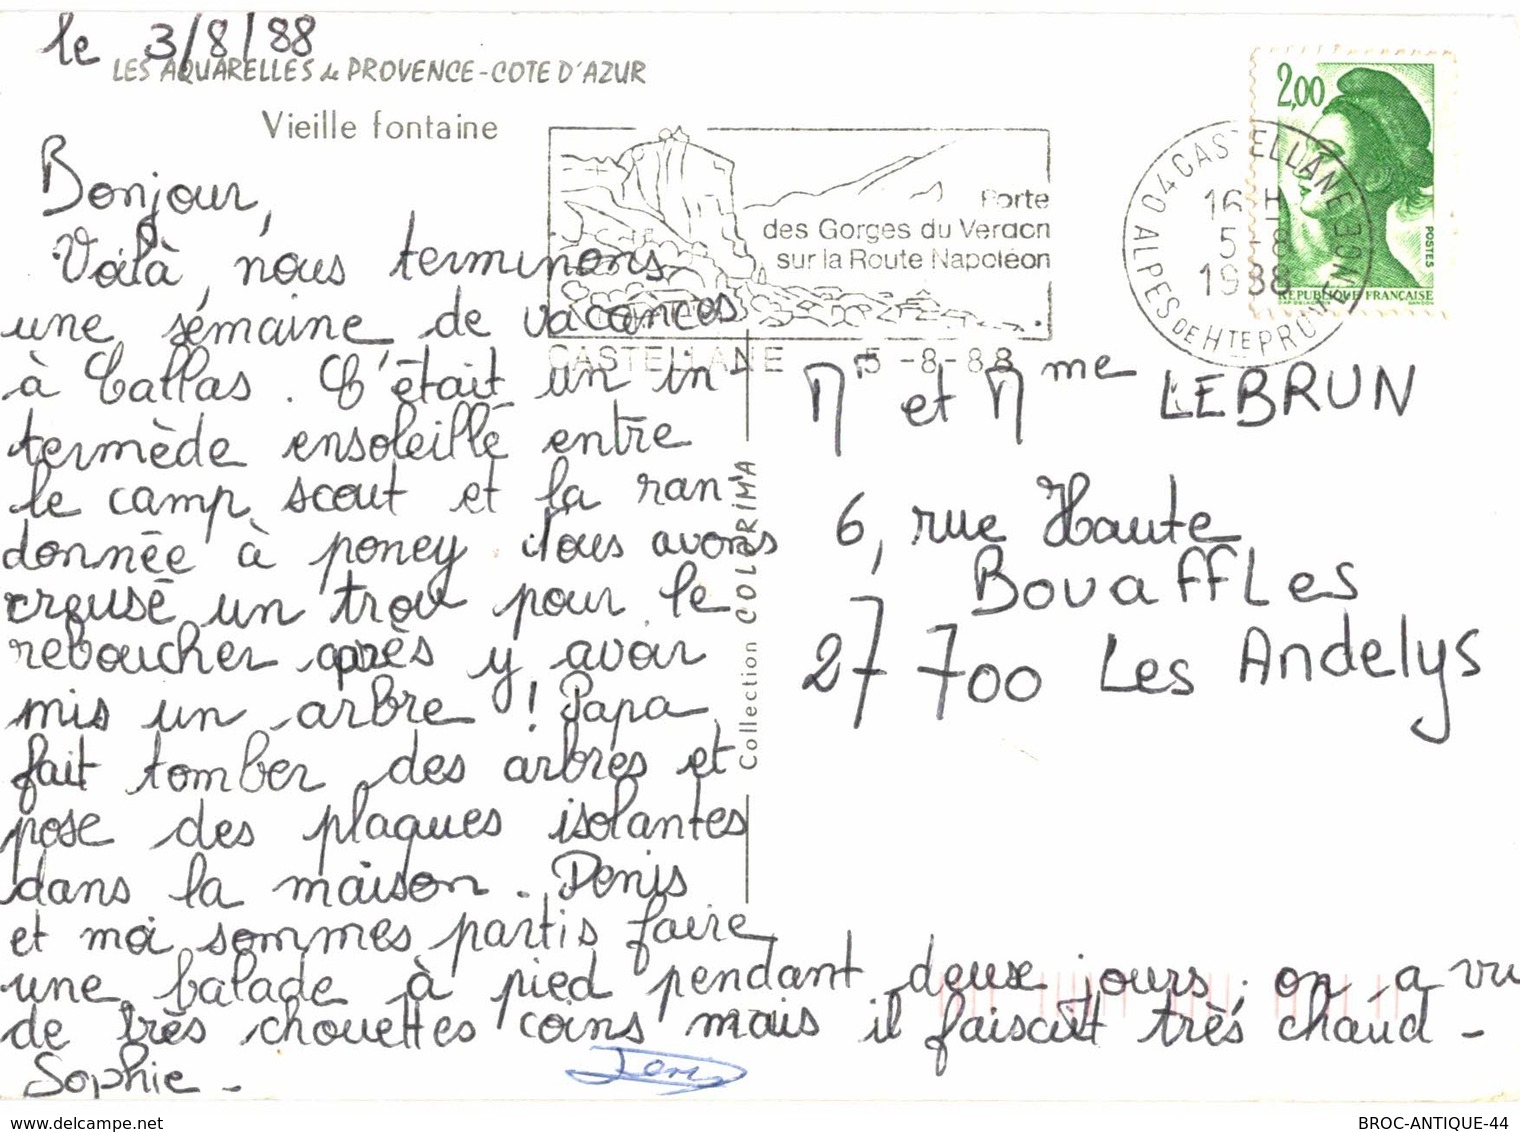 le 3/8/88
LES AQUARELLES de PROVENCE-COTE D'AZUR
Vieille fontaine
Bonjour,
Voilà, nous terminons
une semaine de vacances
à Callas. C'était un in
termède ensoleillé entre
le camp scout et la ran-
donnée à poney. Nous avons
creusé un trou pour le
reboucher après y avoir
mis un arbre ! Papa
fait tomber des arbres et
pose des plaques isolantes
dans la maison. Denis
et moi sommes partis faire
une balade à pied pendant deux jours, on a vu
de très chouettes coins mais il faisait très chaud -
Sophie -
Denis
Porte
des Gorges du Verdon
sur la Route Napoléon
CASTELLANE 5-8-88
04 CASTELLANE
16 H
5-8
1988
ALPES DE HTE PROVENCE
2,00
POSTES
REPUBLIQUE FRANÇAISE
Collection COLORIMA
Mr et Mme LEBRUN
6, rue Haute
BouaffLes
27700 Les Andelys
delcampe.net
BROC-ANTIQUE-44